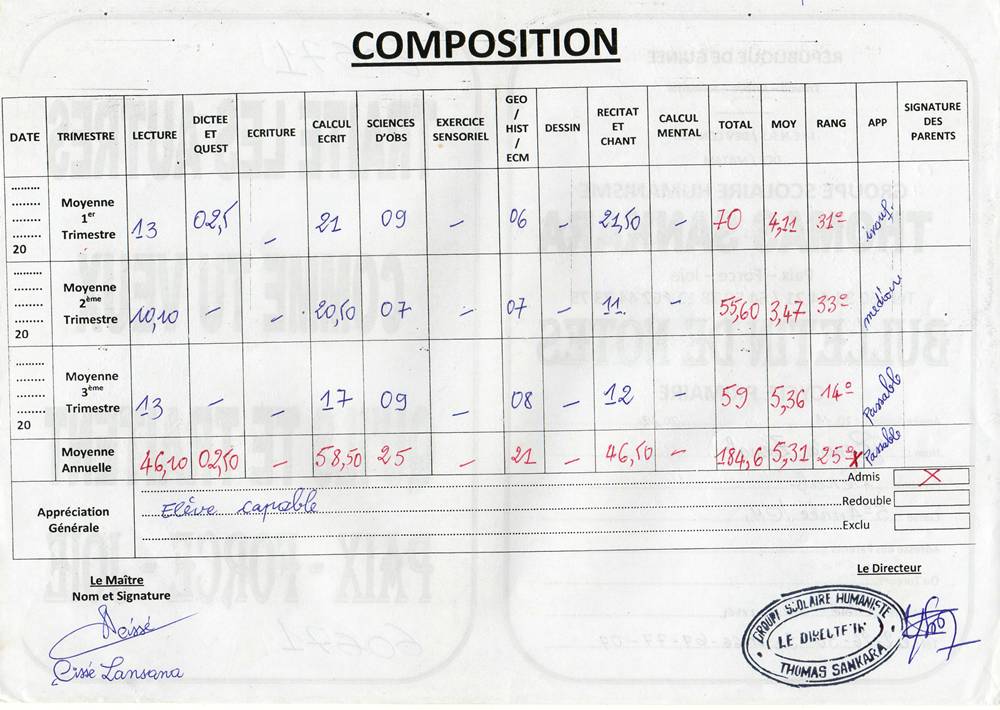 COMPOSITION
DATE TRIMESTRE LECTURE DICTEE ET QUEST ECRITURE CALCUL ECRIT SCIENCES D'OBS EXERCICE SENSORIEL GEO / HIST / ECM DESSIN RECITAT ET CHANT CALCUL MENTAL TOTAL MOY RANG APP SIGNATURE DES PARENTS
......... ......... ......... ......... 20 Moyenne 1er Trimestre 13 02,5 - 21 09 - 06 - 21,50 - 70 4,11 31e insuf.
......... ......... ......... ......... 20 Moyenne 2ème Trimestre 10,10 - - 20,50 07 - 07 - 11 - 55,60 3,47 33e médiocre
......... ......... ......... ......... 20 Moyenne 3ème Trimestre 13 - - 17 09 - 08 - 12 - 59 5,36 14e Passable
Moyenne Annuelle 46,10 02,50 - 58,50 25 - 21 - 46,50 - 184,6 5,31 25e Passable
Appréciation Générale
Elève capable
Admis X
Redouble
Exclu
Le Maître
Nom et Signature
Cissé Lansana
Le Directeur
GROUPE SCOLAIRE HUMANISTE
LE DIRECTEUR
THOMAS SANKARA